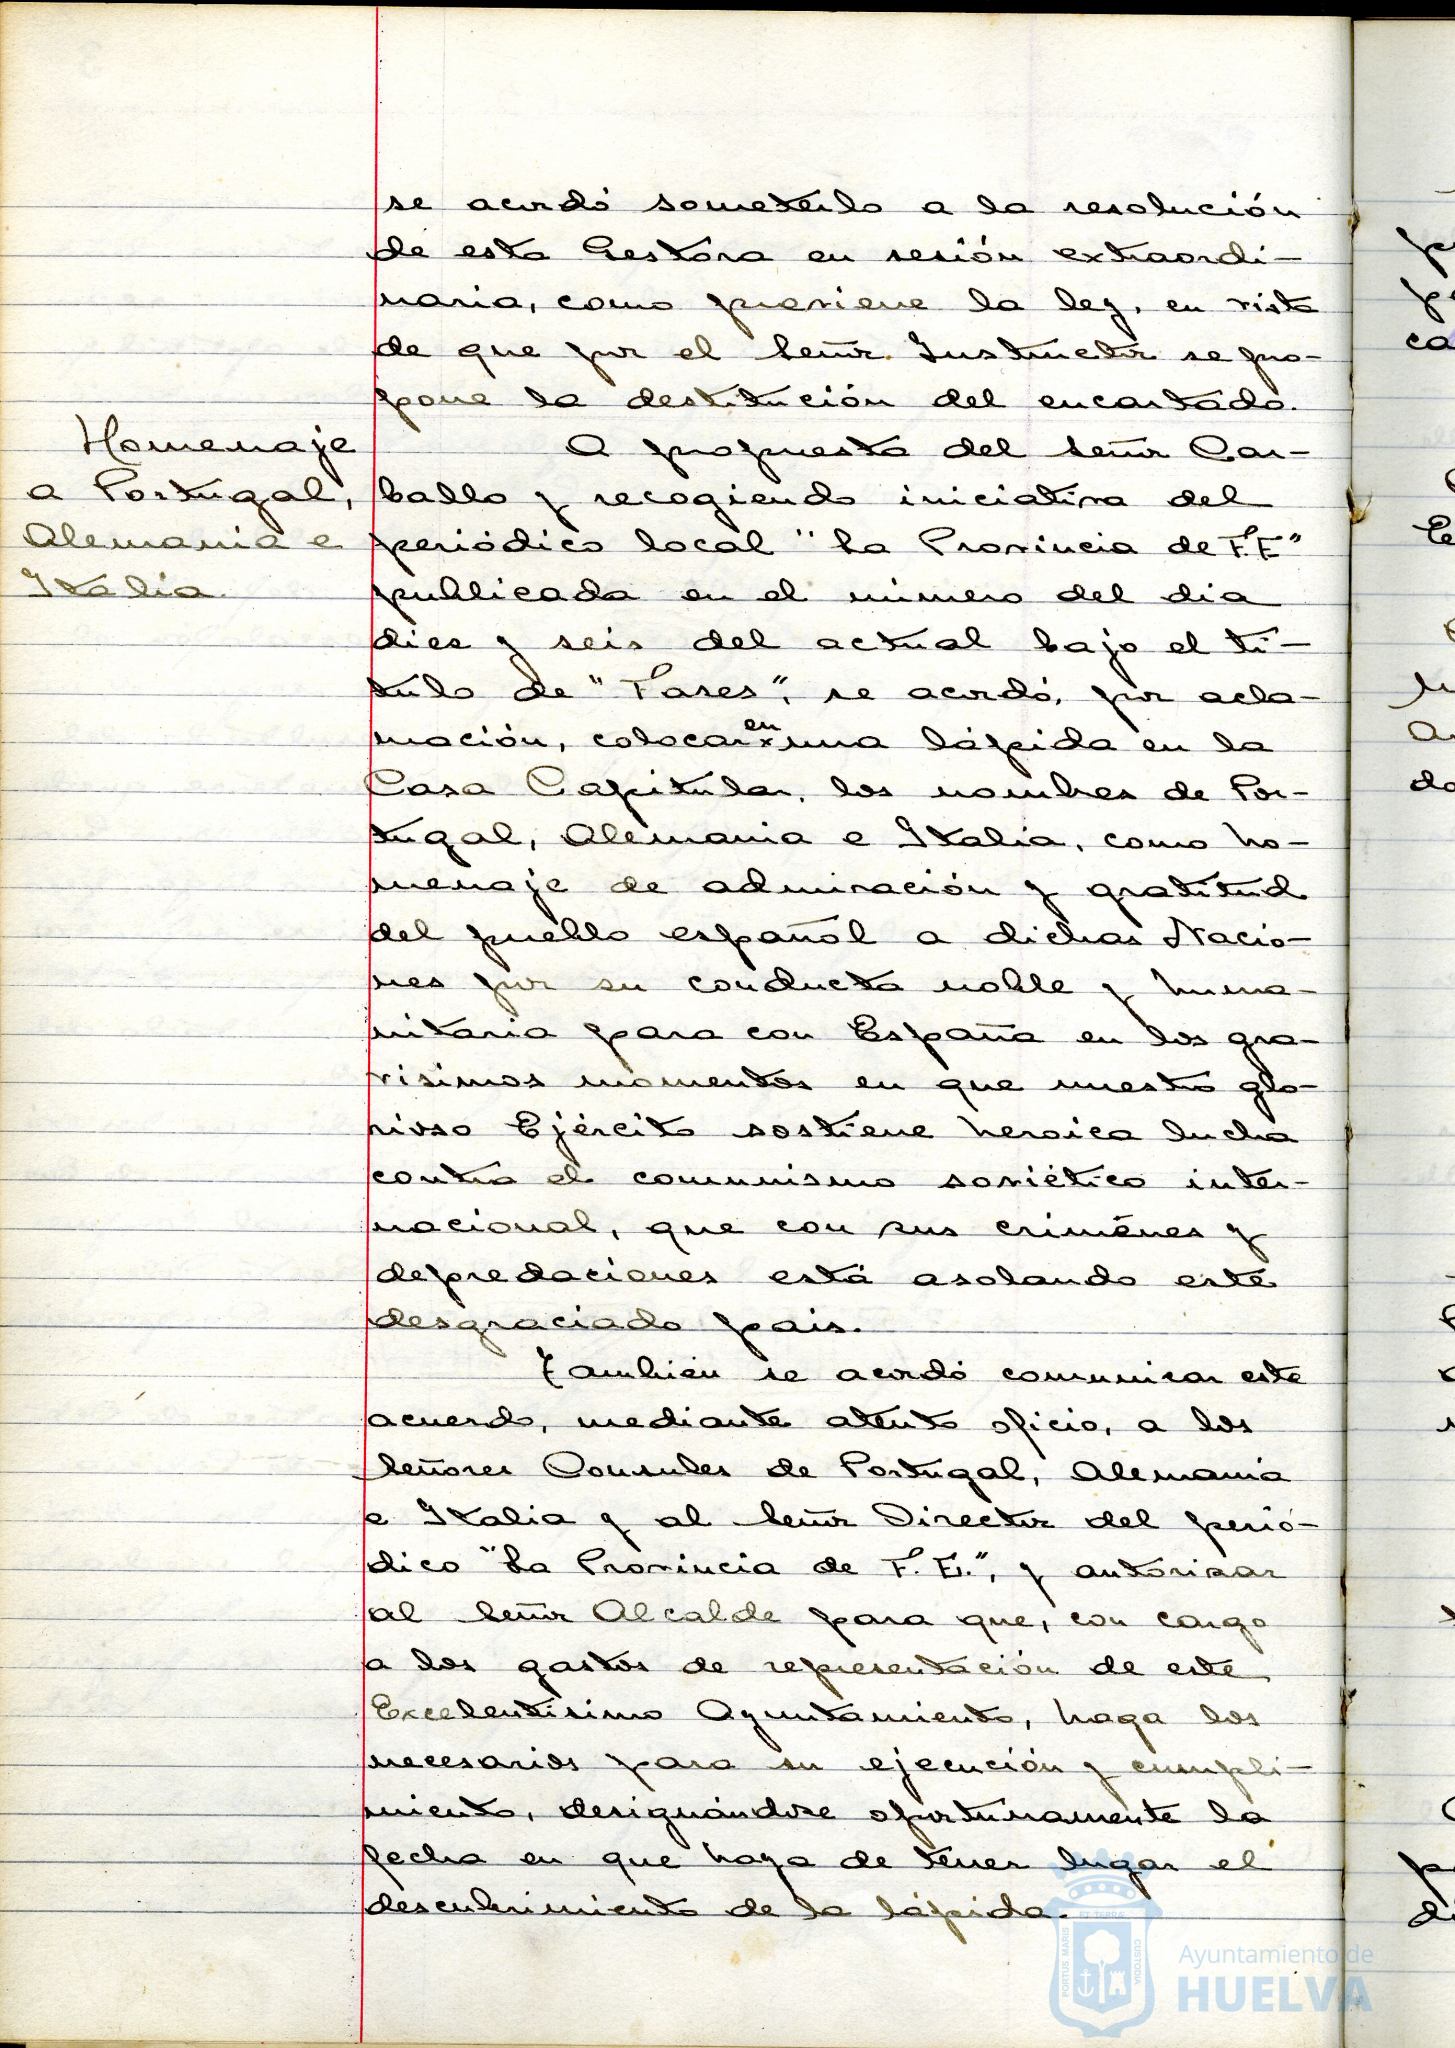 se acordó someterlo a la resolución
de esta Gestora en sesión extraordi-
naria, como previene la ley, en vista
de que por el Señor Instructor se pro-
pone la destitución del encartado.
Homenaje
a Portugal,
Alemania e
Italia.
A propuesta del Señor Car-
ballo y recogiendo iniciativa del
periódico local "La Provincia de F.E"
publicada en el número del dia
diez y seis del actual bajo el tí-
tulo de "Fases", se acordó, por acla-
mación, colocar en una lápida en la
Casa Capitular, los nombres de Por-
tugal, Alemania e Italia, como ho-
menaje de admiración y gratitud
del pueblo español a dichas Nacio-
nes por su conducta noble y huma-
nitaria para con España en los gra-
visimos momentos en que nuestro glo-
rioso Ejército sostiene heroica lucha
contra el comunismo soviético inter-
nacional, que con sus crimenes y
depredaciones está asolando este
desgraciado pais.
También se acordó comunicar este
acuerdo, mediante atento oficio, a los
Señores Consules de Portugal, Alemania
e Italia y al Señor Director del perió-
dico "La Provincia de F. E.", y autorizar
al Señor Alcalde para que, con cargo
a los gastos de representación de este
Excelentisimo Ayuntamiento, haga los
necesarios para su ejecución y cumpli-
miento, designándose oportunamente la
fecha en que haya de tener lugar el
descubrimiento de la lápida.
PORTUS MARIS
ET TERRÆ
CUSTODIA
Ayuntamiento de
HUELVA